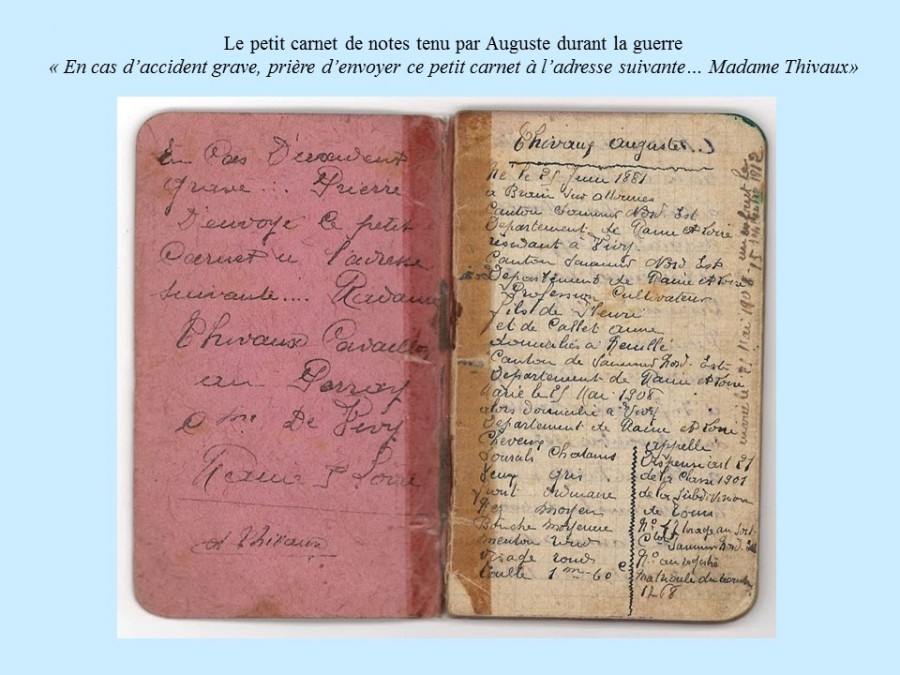 Le petit carnet de notes tenu par Auguste durant la guerre
« En cas d’accident grave, prière d’envoyer ce petit carnet à l’adresse suivante… Madame Thivaux»
En Cas D'accident
grave... Prierre
D'envoye Ce petit
Carnet a l'adresse
suivante.... Madame
Thivaux
au Perray
Cme De Vivy
Maine & Loire
A Thivaux
Thivaux Auguste
Né le 25 Juin 1881
a Brain sur allonnes
Canton Saumur Nord. Est
Departement de Maine et Loire
résidant à Vivy
Canton Saumur Nord Est
Departement de Maine et Loire
Profession Cultivateur
fils de
et de Callet anne
domiciliés à Neuillé
Canton de Saumur Nord. Est
Departement de Maine et Loire
Marié le 25 Mai 1908
alors domicilié a Vivy
Departement de Maine et Loire
Cheveux
Sourcils Chatains
yeux gris
front ordinaire
Nez moyen
Bouche moyenne
menton rond
visage rond
taille 1m-60c
appellé
Dispensé art 21
de la Classe 1901
de la Subdivision
de Tours
No tirage au sort
Saumur Nord. Est
No au registre
Matricule du
1268
marié le 25 Mai 1908
1912